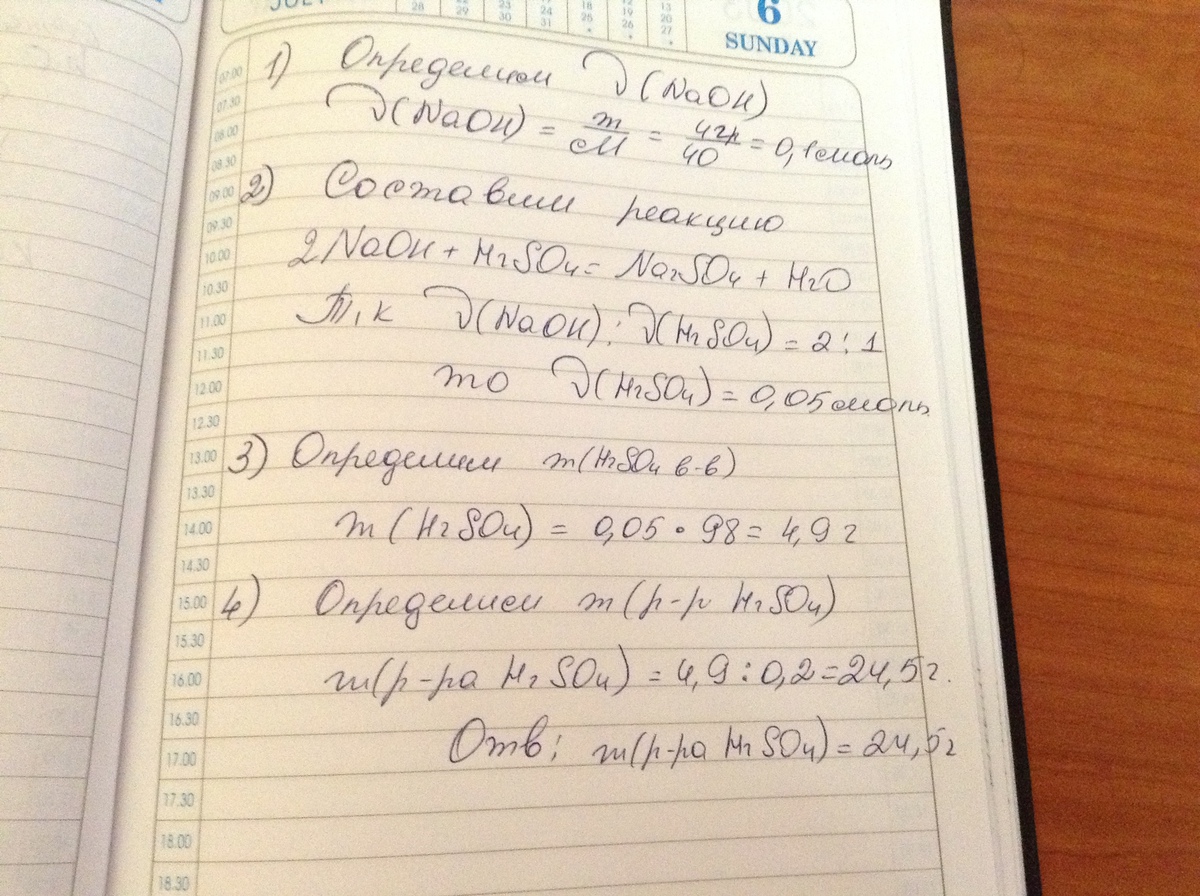 JULY
28 29 23 30 24 31 18 25 12 19 26 13 20 27
6
SUNDAY
07.00
1) Определим ν(NaOH)
07.30
ν(NaOH) = m/M = 4гр/40 = 0,1 моль
08.00
08.30
2) Составим реакцию
09.00
09.30
2NaOH + H2SO4 = Na2SO4 + H2O
10.00
10.30
Т,к ν(NaOH) : ν(H2SO4) = 2 : 1
11.00
11.30
то ν(H2SO4) = 0,05 моль
12.00
12.30
3) Определим m(H2SO4 в-в)
13.00
13.30
m(H2SO4) = 0,05 • 98 = 4,9 г
14.00
14.30
4) Определим m(р-р H2SO4)
15.00
15.30
m(р-ра H2SO4) = 4,9 : 0,2 = 24,5 г.
16.00
16.30
Отв: m(р-ра H2SO4) = 24,5 г
17.00
17.30
18.00
18.30